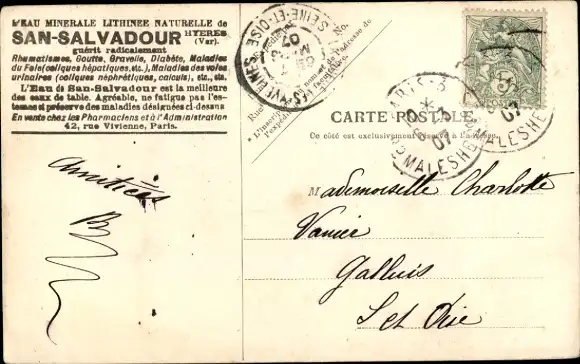 L'EAU MINERALE LITHINEE NATURELLE de
SAN-SALVADOUR HYERES (Var).
guérit radicalement
Rhumatismes, Goutte, Gravelle, Diabète, Maladies
du Foie (coliques hépatiques, etc.), Maladies des voies
urinaires (coliques néphrétiques, calculs), etc., etc.
L'Eau de San-Salvadour est la meilleure
des eaux de table. Agréable, ne fatigue pas l'es-
tomac et préserve des maladies désignées ci-dessus
En vente chez les Pharmaciens et à l'Administration
42, rue Vivienne, Paris.
SEINE-ET-OISE
07
No.
Rue
CARTE POSTALE.
Ce côté est exclusivement réservé à l'adresse.
MALESHE
07
MALESHE
5c
Amitiés
Mademoiselle Charlotte
Vanier
Galluis
S et Oise